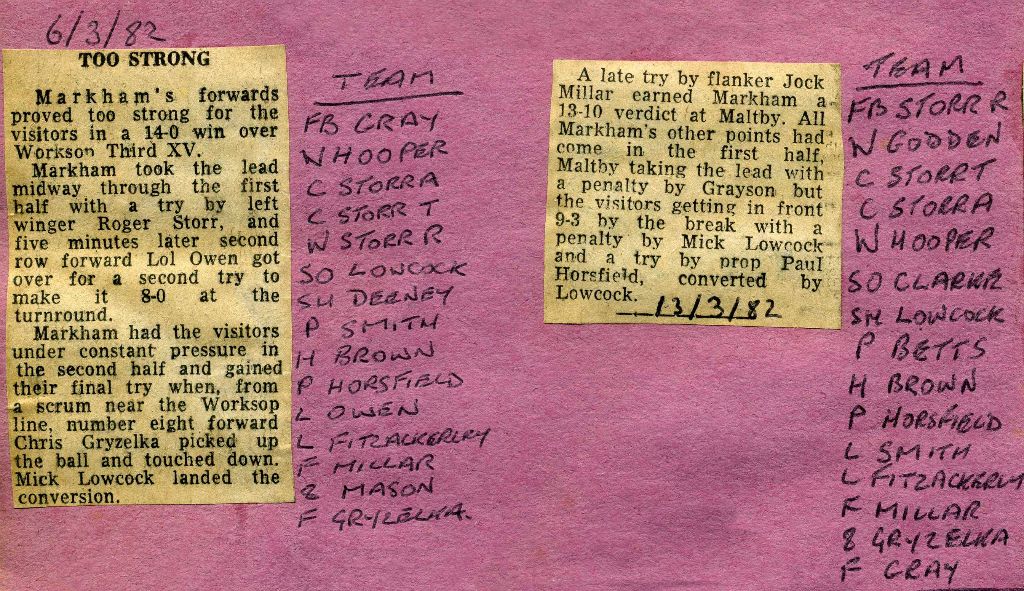 6/3/82
TOO STRONG
Markham's forwards
proved too strong for the
visitors in a 14-0 win over
Workson Third XV.
Markham took the lead
midway through the first
half with a try by left
winger Roger Storr, and
five minutes later second
row forward Lol Owen got
over for a second try to
make it 8-0 at the
turnround.
Markham had the visitors
under constant pressure in
the second half and gained
their final try when, from
a scrum near the Worksop
line, number eight forward
Chris Gryzelka picked up
the ball and touched down.
Mick Lowcock landed the
conversion.
TEAM
FB GRAY
W HOOPER
C STORR A
C STORR T
W STORR R
SO LOWCOCK
SH DEENEY
P SMITH
H BROWN
P HORSFIELD
L OWEN
L FITZACKERLEY
F MILLAR
8 MASON
F GRYZELKA.
A late try by flanker Jock
Millar earned Markham a
13-10 verdict at Maltby. All
Markham's other points had
come in the first half,
Maltby taking the lead with
a penalty by Grayson but
the visitors getting in front
9-3 by the break with a
penalty by Mick Lowcock
and a try by prop Paul
Horsfield, converted by
Lowcock.
13/3/82
TEAM
FB STORR R
W GODDEN
C STORR T
C STORR A
W HOOPER
SO CLARKE
SH LOWCOCK
P BETTS
H BROWN
P HORSFIELD
L SMITH
L FITZACKERLY
F MILLAR
8 GRYZELKA
F GRAY